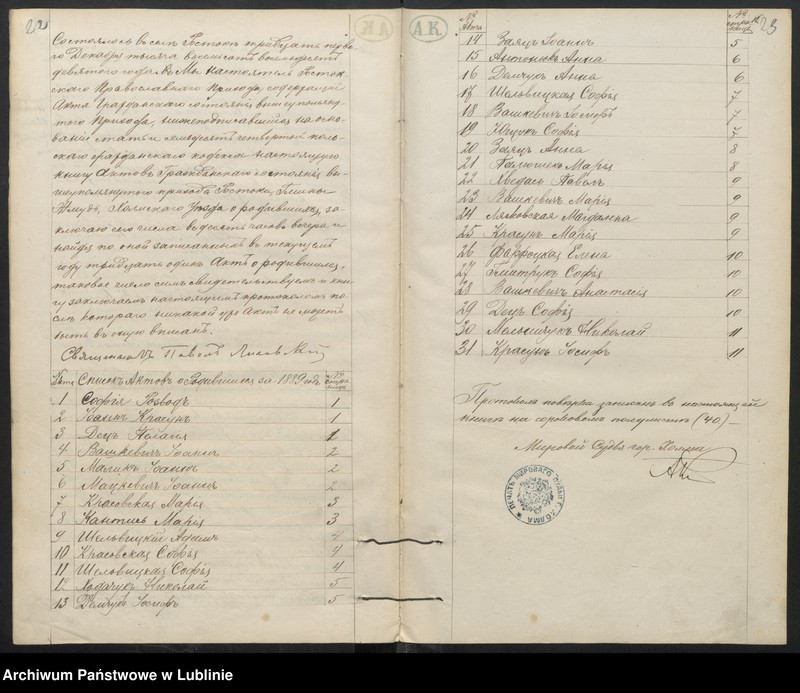 22
Состоялось въ селѣ Бостокѣ тридцать перва-
го Декабря тысяча восемьсотъ восемьдесятъ
девятого года. Мы настоятель Восток-
скаго Православнаго Прихода, содержащій
Акты Гражданскаго состоянія вышеупомяну-
таго Прихода, нижеподписавшійся на осно-
ваніи статьи семьдесятъ четвертой поль-
скаго гражданскаго кодекса настоящую
книгу Актовъ Гражданскаго состоянія вы-
шеупомянутаго прихода Бостокъ, Гмины
Жмудь, Холмскаго Уѣзда о родившихся, за-
ключаю сего числа въ десять часовъ вечера и
найдя по оной записанныхъ въ текущемъ
году тридцать одинъ Актъ о родившихся,
таковое число симъ свидѣтельствуемъ и кни-
гу заключаемъ настоящимъ протоколомъ по-
слѣ котораго никакой уже Актъ не можетъ
быть въ оную вписанъ.
Священникъ Павелъ
№ Акта Списокъ Актовъ о Родившихся за 1889 годъ № страницы
1 Софія Розводъ 1
2 Іоаннъ Красунъ 1
3 Децъ Пелагія 1
4 Вашкевичъ Іоаннъ 2
5 Маликъ Іоаннъ 2
6 Мацкевичъ Іоаннъ 2
7 Красовская Марія 3
8 Кантысь Марія 3
9 Шельвицкій Адамъ 4
10 Красовская Софія 4
11 Шеловицкая Софія 4
12 Ходачукъ Николай 5
13 Демчукъ Іосифъ 5
А.К.
№ Акта № страницы
23
14 Заяцъ Іоаннъ 5
15 Антонюкъ Анна 6
16 Демчукъ Анна 6
17 Шельвицкая Софія 7
18 Вашкевичъ Іосифъ 7
19 Ющукъ Софія 7
20 Заяцъ Анна 8
21 Палюшекъ Марія 8
22 Хведась Павелъ 9
23 Вашкевичъ Марія 9
24 Ляховская Магдалена 9
25 Красунъ Марія 9
26 Фарроцкая Елена 10
27 Гмитрукъ Софія 10
28 Вашкевичъ Анастасія 10
29 Децъ Софія 10
30 Мельничукъ Николай 11
31 Красунъ Іосифъ 11
Протоколъ повѣрки записанъ въ настоящей
книгѣ на сороковомъ полулистѣ (40) —
Мировой Судья гор. Холма
ПЕЧАТЬ МИРОВАГО СУДЬИ Г. ХОЛМА
Archiwum Państwowe w Lublinie